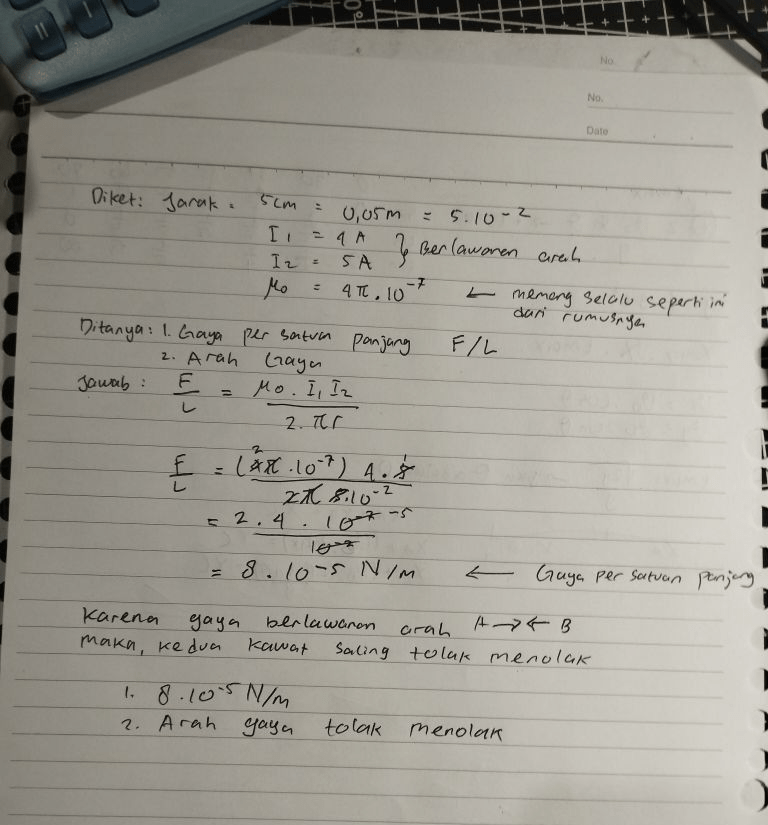 No.
No.
Date
Diket: Jarak = 5cm = 0,05m = 5.10⁻²
I₁ = 4 A } Berlawanan arah
I₂ = 5A
μ₀ = 4π.10⁻⁷ ← memang selalu seperti ini
dari rumusnya
Ditanya: 1. Gaya per satuan panjang F/L
2. Arah Gaya
Jawab: F/L = μ₀ . I₁ I₂ / 2.πr
F/L = (4π.10⁻⁷) 4.5 / 2π 5.10⁻² 2 1
= 2.4.10⁻⁷ ⁻⁵ / 10⁻²
= 8.10⁻⁵ N/m ← Gaya per satuan panjang
Karena gaya berlawanan arah A→← B
maka, kedua kawat saling tolak menolak
1. 8.10⁻⁵ N/m
2. Arah gaya tolak menolak